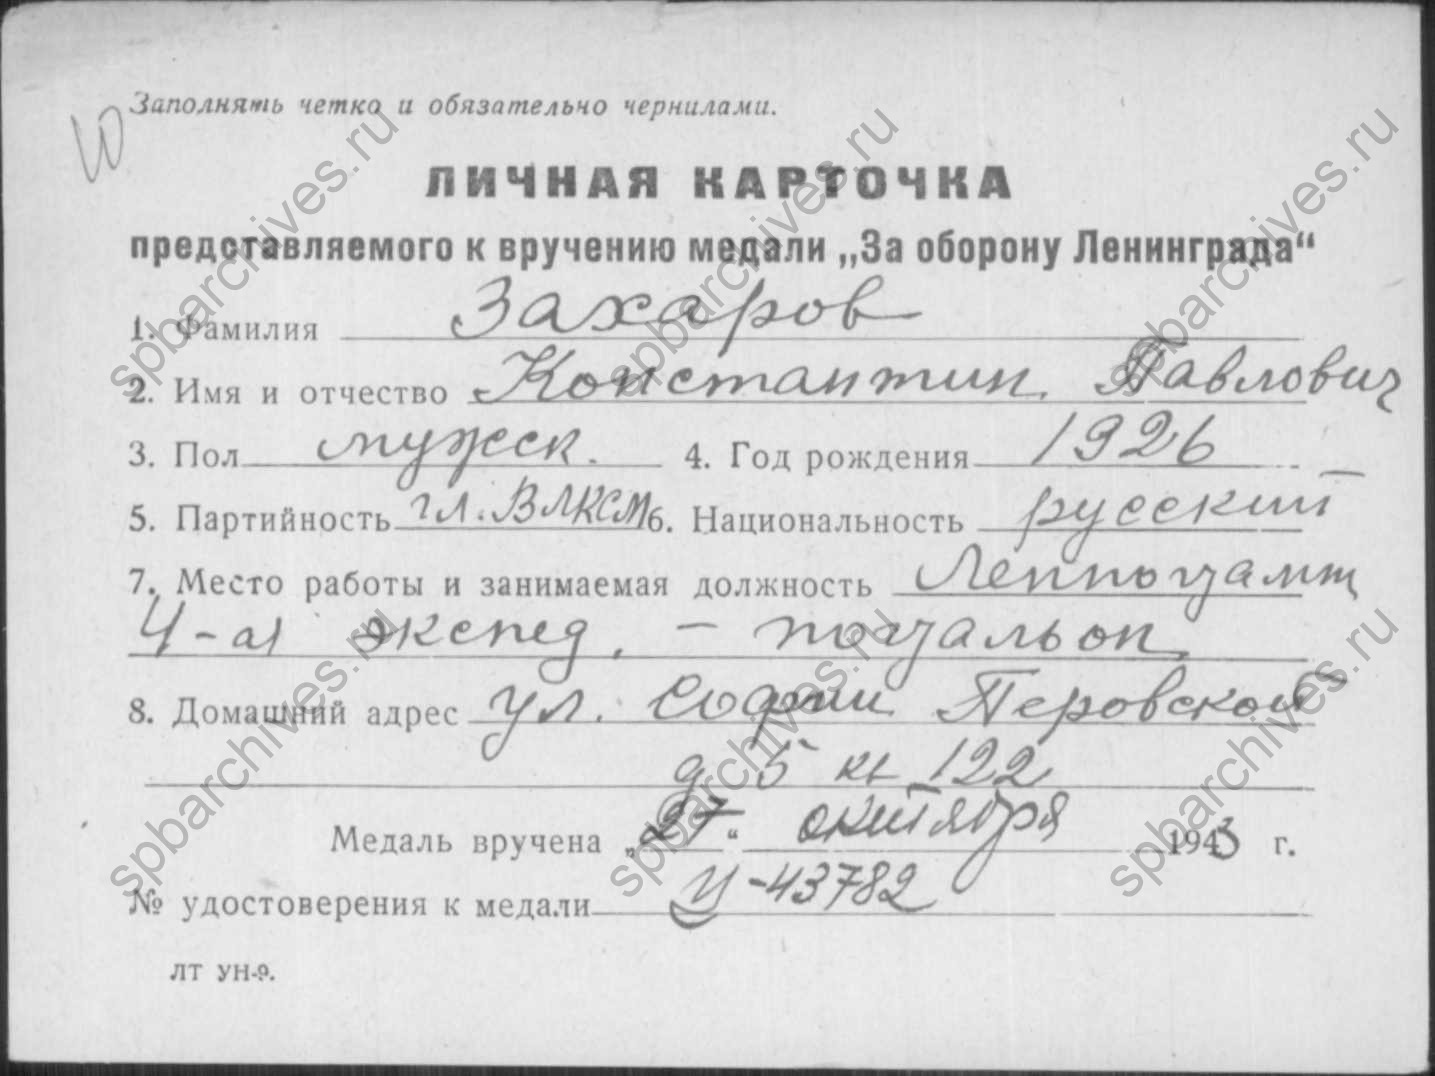 Заполнять четко и обязательно чернилами.
ЛИЧНАЯ КАРТОЧКА
представляемого к вручению медали „За оборону Ленинграда“
1. Фамилия Захаров
2. Имя и отчество Константин Павлович
3. Пол мужск. 4. Год рождения 1926
5. Партийность чл. ВЛКСМ 6. Национальность русский
7. Место работы и занимаемая должность Ленпочтамт
4-ая экспед. – почтальон
8. Домашний адрес ул. Софии Перовской
д 5 кв 122
Медаль вручена „27“ октября 1943 г.
№ удостоверения к медали 43782
ЛТ УН-9.
spbarchives.ru
spbarchives.ru
spbarchives.ru
spbarchives.ru
spbarchives.ru
spbarchives.ru